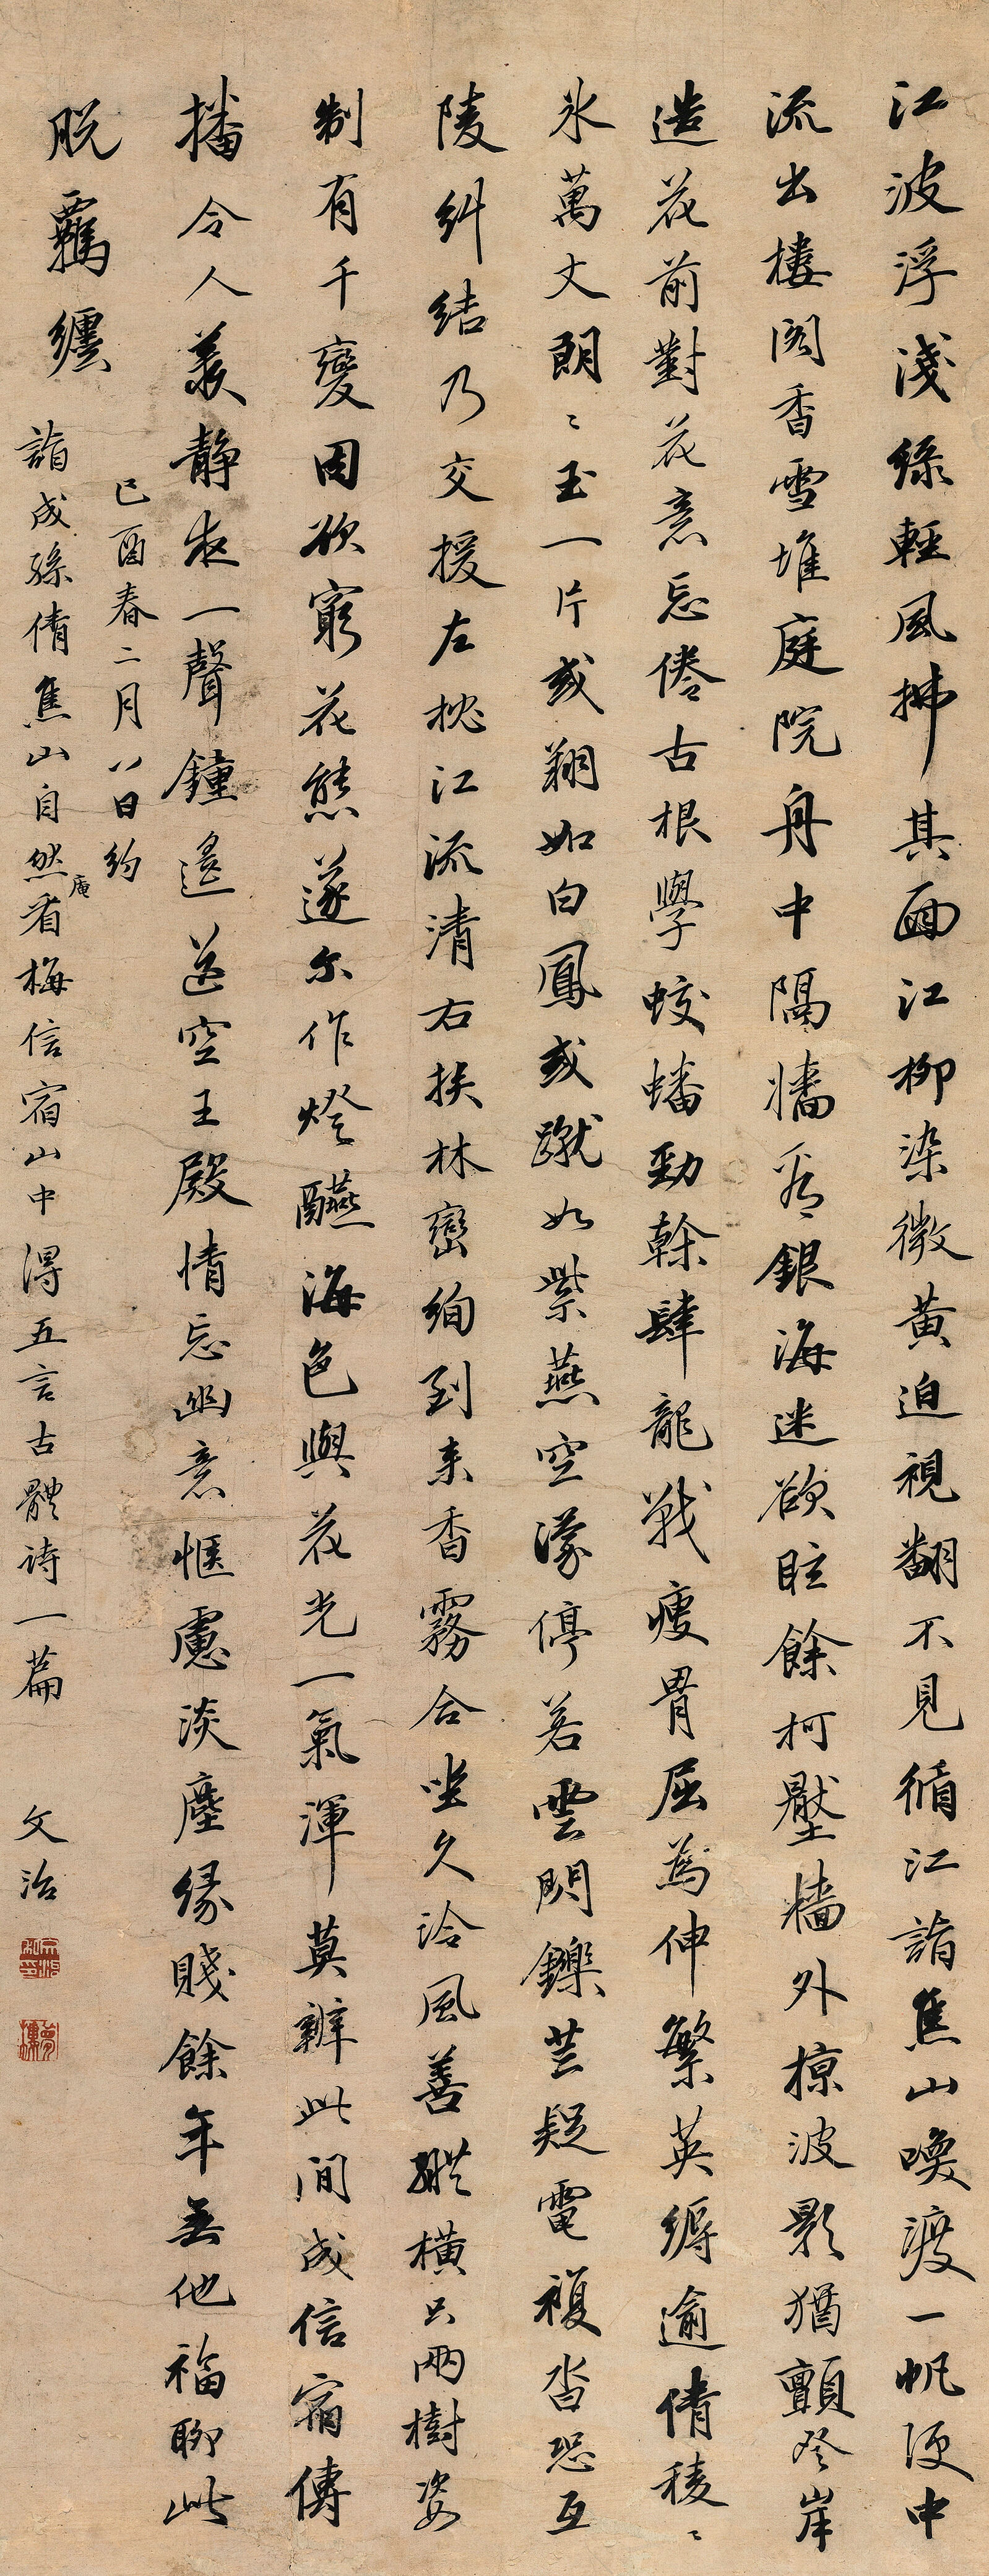 江波浮淺綠輕風拂其面江柳染微黃迫視翻不見循江詣焦山喚渡一帆便中
流出樓閣香雪堆庭院舟中隔牆看銀海迷欲眩餘柯壓牆外掠波影猶顫登岸
造花前對花意忘倦古根學蛟蟠勁幹肆龍戰瘦骨屈為伸繁英縟逾倩稜〻
氷萬丈朗〻玉一片或翔如白鳳或蹴如紫燕空濛停若雲閃鑠芒疑電複沓恐互
陵糾結乃交援左枕江流清右挟林巒絢到来香霧合坐久泠風善縱橫只兩樹姿
制有千變因欲窮花態遂尔作燈讌海色與花光一氣渾莫辨此間成信宿傳
播令人羨靜夜一聲鐘遙遙空王殿情忘幽意愜慮淡塵緣賤餘年無他福聊此
脱羈纏
己酉春二月八日約
詣成孫倩焦山自然庵看梅信宿山中得五言古體詩一篇 文治